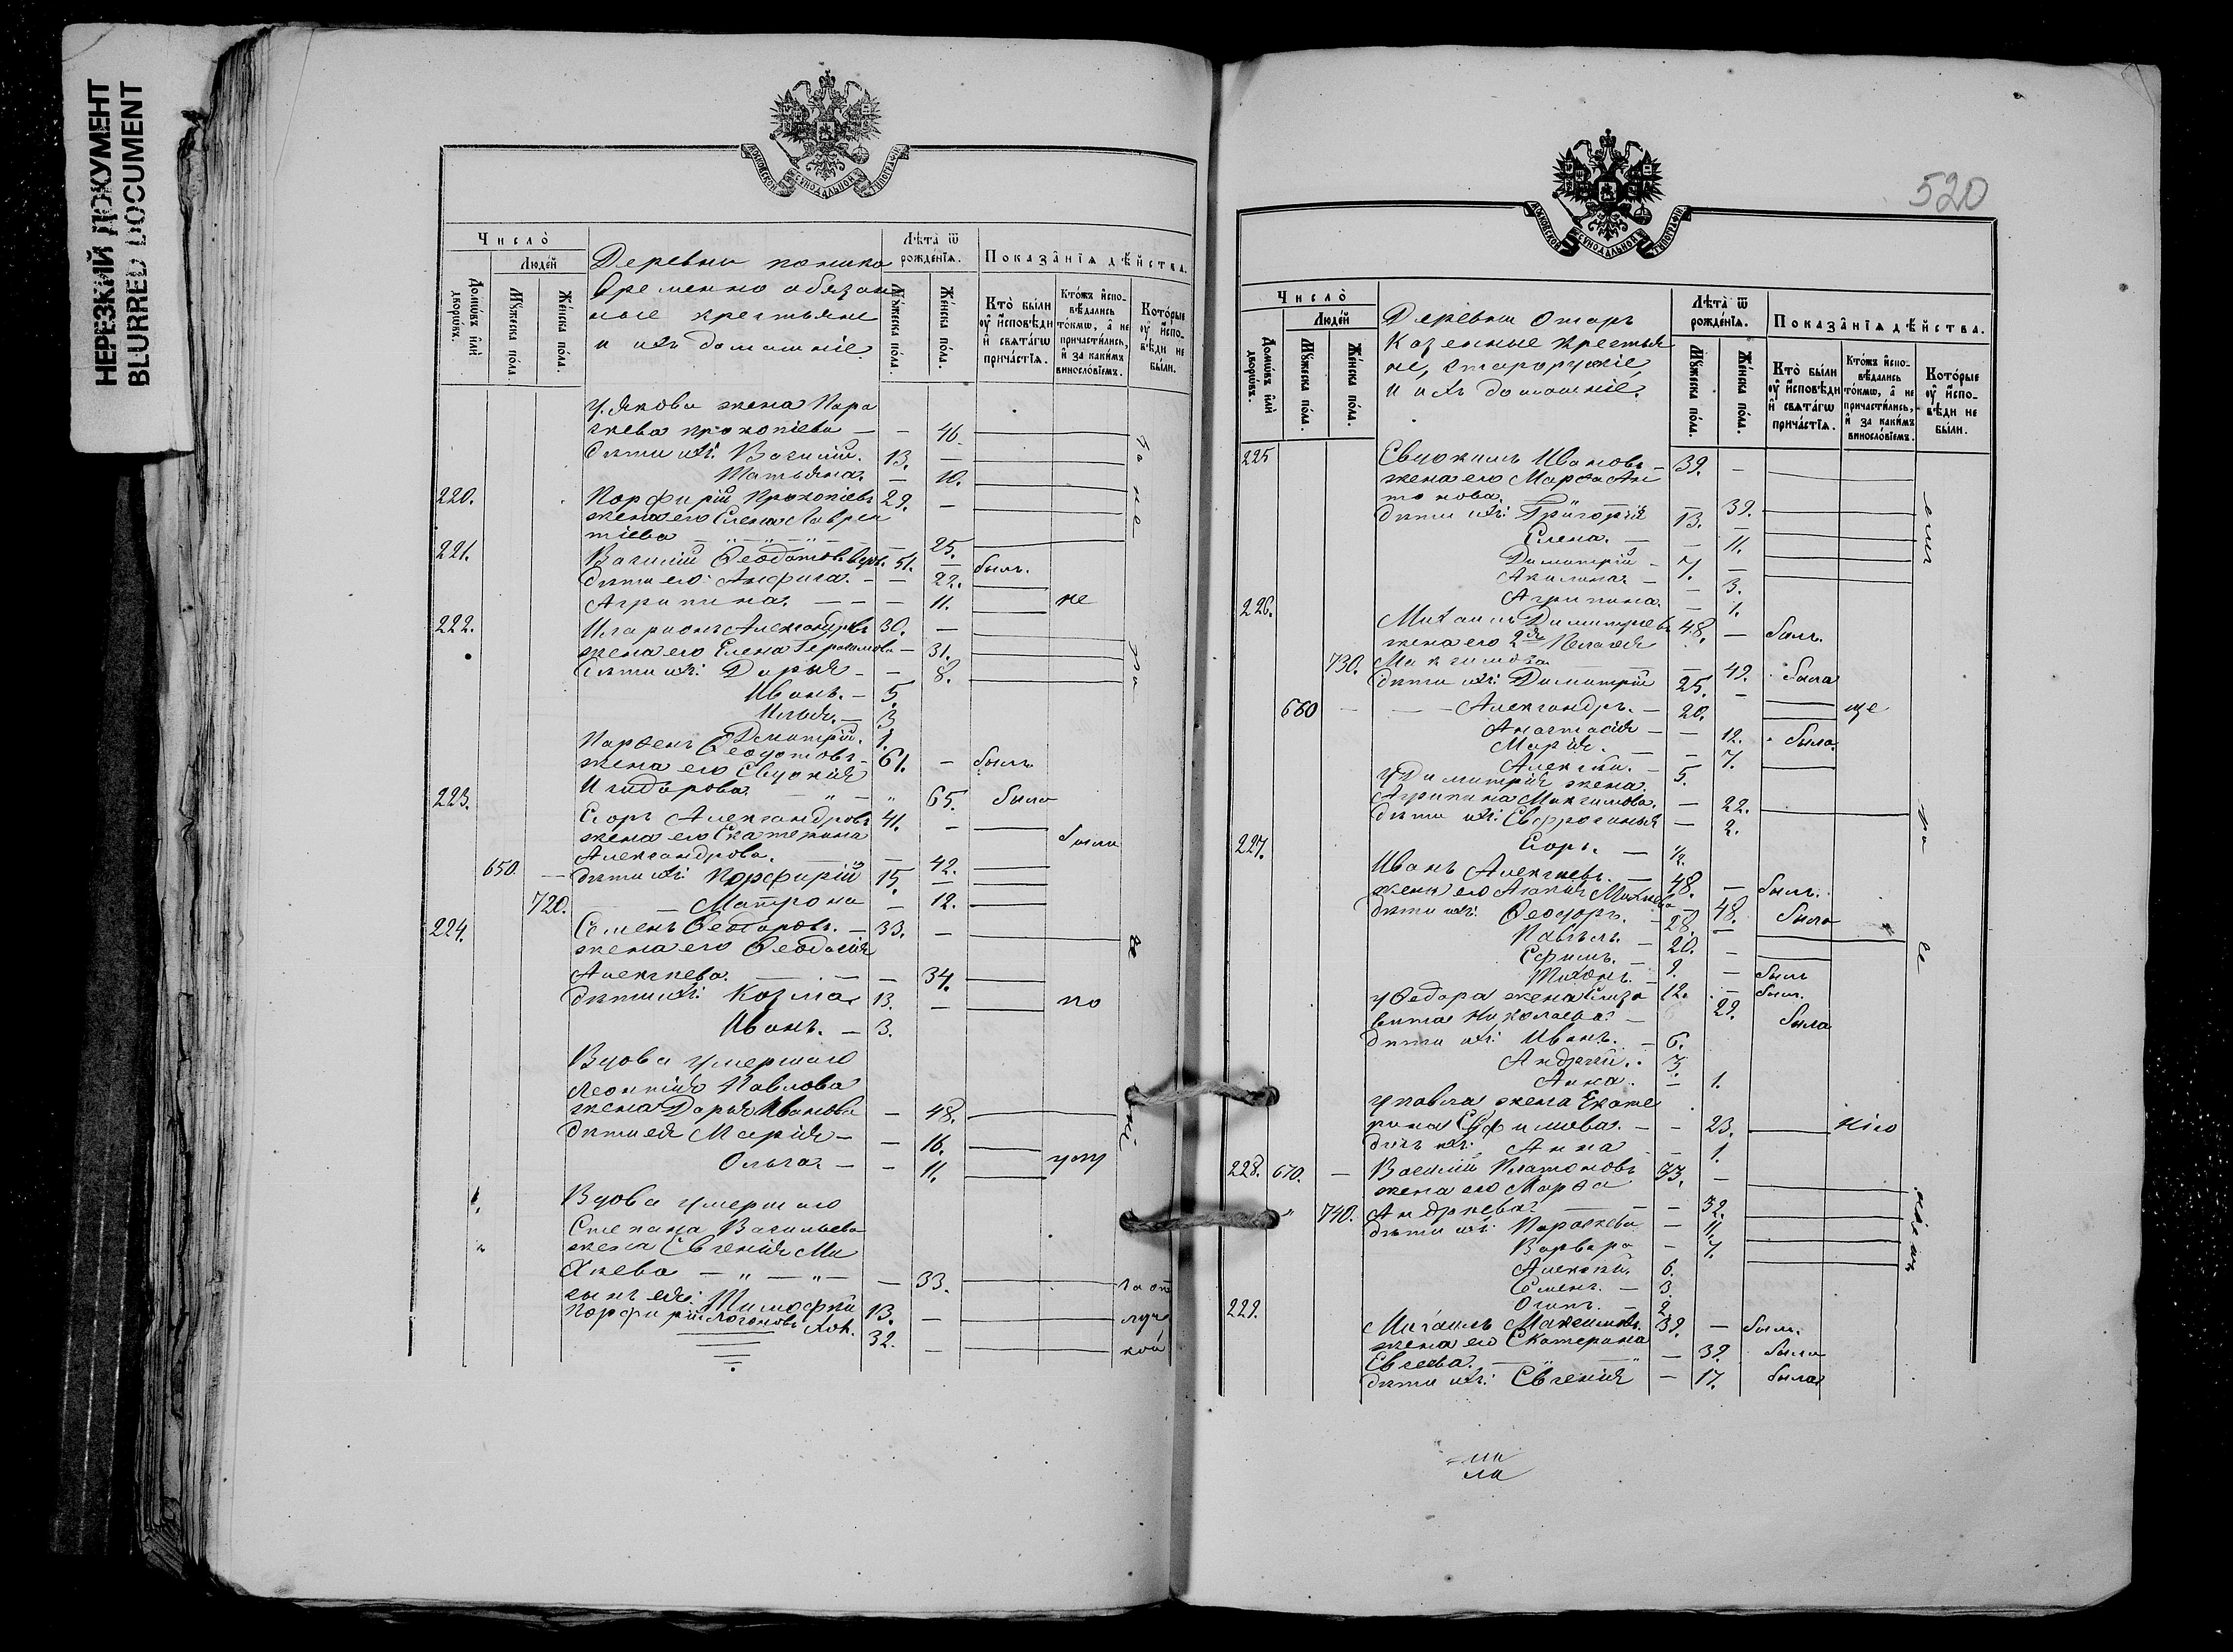 НЕРЕЗКИЙ ДОКУМЕНТ
BLURRED DOCUMENT
МОСКОВСКОЙ СѴНОДАЛЬНОЙ ТИПОГРАФІИ
Число̀
Людей
Домѡвъ и҆лѝ дворѡвъ.
Мꙋжеска по́ла.
Же́нска по́ла.
Деревни
временно обязан
ные крестьяне
и ихъ домашніе
Лѣта̀ ѿ рожде́нїѧ.
Мꙋжеска по́ла.
Же́нска по́ла.
Показа̑нїѧ дѣ́йства.
Кто̀ бы́ли ᲂу҆ и҆сповѣди и҆ свѧта́гѡ прича́стїѧ.
Кто́жъ и҆спо-вѣдались то́кмѡ, а҆ не причасти́лись, и҆ за каки́мъ винослов́їемъ.
Кото́рые ᲂу҆ и҆спо-вѣди не бы́ли.
у Якова жена Пара
скева Прокопіева — — 46.
дѣти ихъ: Василій. 13. —
Татьяна. — 10.
220. Порфирій Прокопіевъ 29. —
жена его Елена Лаврен
тіева — 25.
221. Василій Ѳеодотовъ вдов. 51. — былъ.
дѣти его: Анфиса. — — 22.
Агрипина. — — — 11. не
222. Иларионъ Александровъ 30. —
жена его Елена Герасимова — 31.
дѣти ихъ: Дарья — — 8.
Иванъ. — 5.
Илья. — 3
Димитрій. 1.
Парѳенъ Ѳеодотовъ — 61. — былъ
жена его Евдокия
Исидорова — " — " 65. была
223. Егоръ Александровъ 41. —
жена его Екатерина
Александрова. — — 42.
650. — дѣти ихъ: Порфирій 15. —
720. — Матрона — 12.
224. Семенъ Ѳеодоровъ. — 33. —
жена его Ѳеодосія
Алексѣева. — — — 34.
дѣти ихъ: Козма 13. — по
Иванъ. — 3.
Вдова умершаго
Леонтія Павлова
жена Дарья Иванова — 48.
дѣти ея Марія — — 16.
Ольга — — 11.
Вдова умершаго
Степана Васильева
жена Евгенія Ми
хѣева — " — " — — 33. за от
сынъ ея: Тимоѳей 13. — луч
Порфирій 32. — кой
520
МОСКОВСКОЙ СѴНОДАЛЬНОЙ ТИПОГРАФІИ
Число̀
Людей
Домѡвъ и҆лѝ дворѡвъ.
Мꙋжеска по́ла.
Же́нска по́ла.
Деревни Отаръ
Казенные крестья
не, старорускіе
и ихъ домашніе.
Лѣта̀ ѿ рожде́нїѧ.
Мꙋжеска по́ла.
Же́нска по́ла.
Показа̑нїѧ дѣ́йства.
Кто̀ бы́ли ᲂу҆ и҆сповѣди и҆ свѧта́гѡ прича́стїѧ.
Кто́жъ и҆спо-вѣдались то́кмѡ, а҆ не причасти́лись, и҆ за каки́мъ винослов́їемъ.
Кото́рые ᲂу҆ и҆спо-вѣди не бы́ли.
225 Евдокимъ Ивановъ — 39. —
жена его Марѳа Ан
тонова. — 39.
дѣти ихъ: Григорій 13. —
Елена. — — 11.
Димитрій — 7. —
Акилина — — 3.
Агрипина. — 1.
226. Михаилъ Димитріевъ 48. — былъ.
жена его 2я Пелагея
730. Максимова — 49. была
дѣти ихъ: Димитрій 25. —
660 — — Александръ. — 20. ще
Анастасія — — 12. была
Марія. — — 7.
Алексѣй. — 5.
у Димитрія жена
Агрипина Максимова. — 22.
дѣти ихъ: Евфросинья — 2.
Егоръ. — ½.
227. Иванъ Алексѣевъ. — 48. — былъ.
жена его Анна 48. была
дѣти ихъ: Ѳеодоръ. — 28. —
Павелъ. — 20. —
Ефимъ. — 9. — былъ
Тихонъ. — 12. — былъ.
у Ѳедора жена Елиза
вета Николаева — 29. была
дѣти ихъ: Иванъ. — 6.
Андрей. 3.
Анна. — 1.
у Павла жена Екате
рина Ефимова. — — 23.
дочь ихъ: Анна — 1.
228. 670. — Василій Платоновъ 33. —
жена его Марѳа
740. Андреева. — — 32.
дѣти ихъ: Параскева — 11.
Варвара — 7.
Алексѣй. 6.
Семенъ. — 3.
Осипъ. — 2.
229. Михаилъ Максимовъ. 39. — былъ.
жена его Екатерина
Евсеева. — " — " — 39. была
дѣти ихъ: Евгения — 17. была